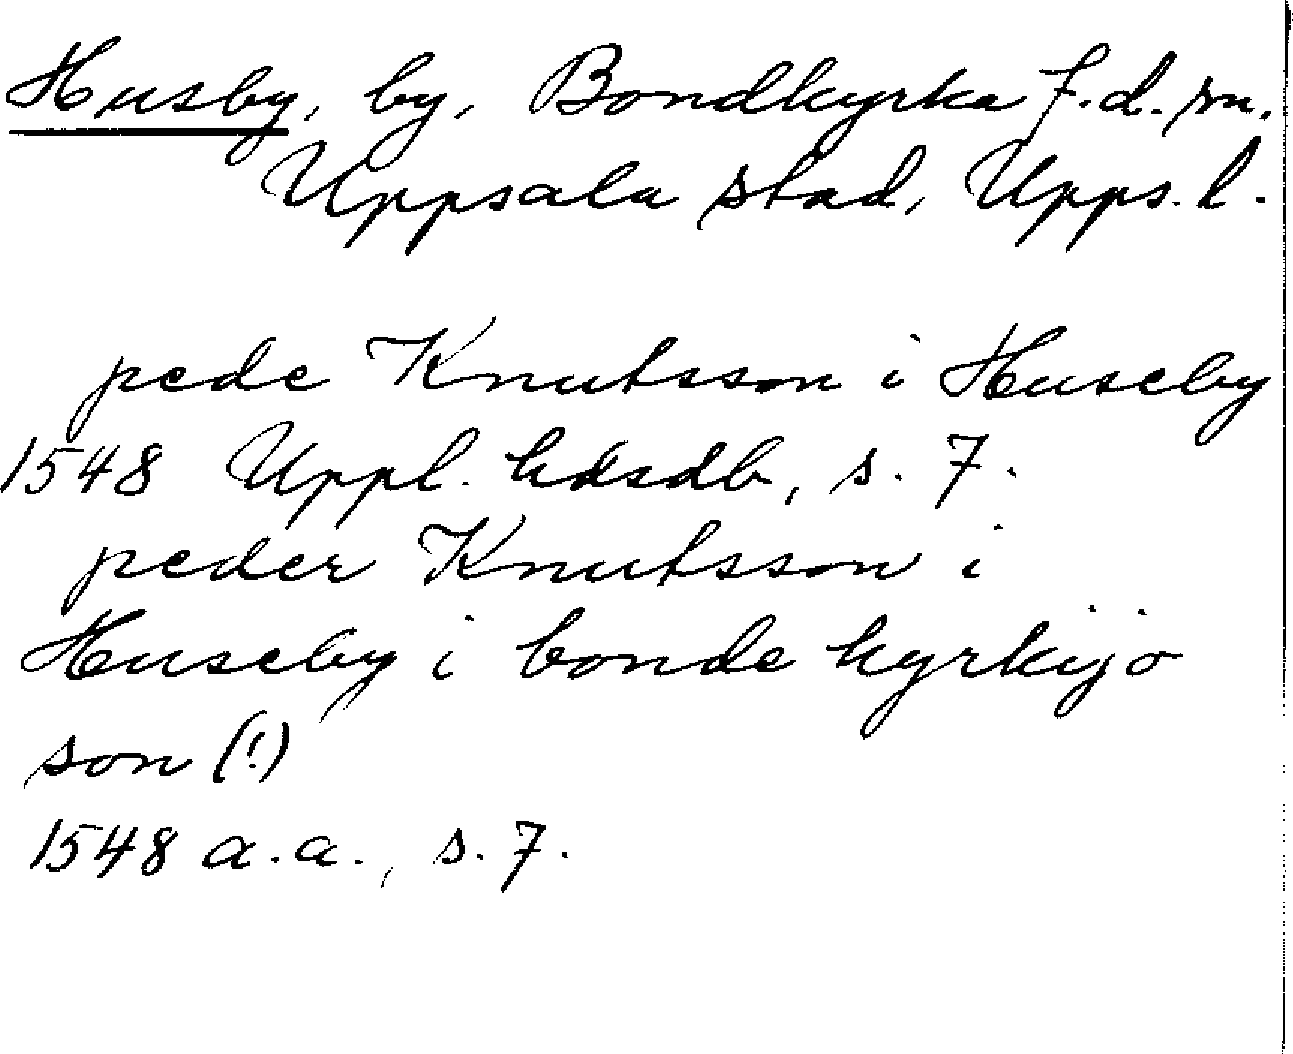 Husby, by, Bondkyrka f.d. sn.
Uppsala stad, Upps. l.
pede Knutsson i Huseby
1548 Uppl. hdsdb, s. 7.
peder Knutsson i
Huseby i bonde kyrkijo
son (!)
1548 a.a., s. 7.